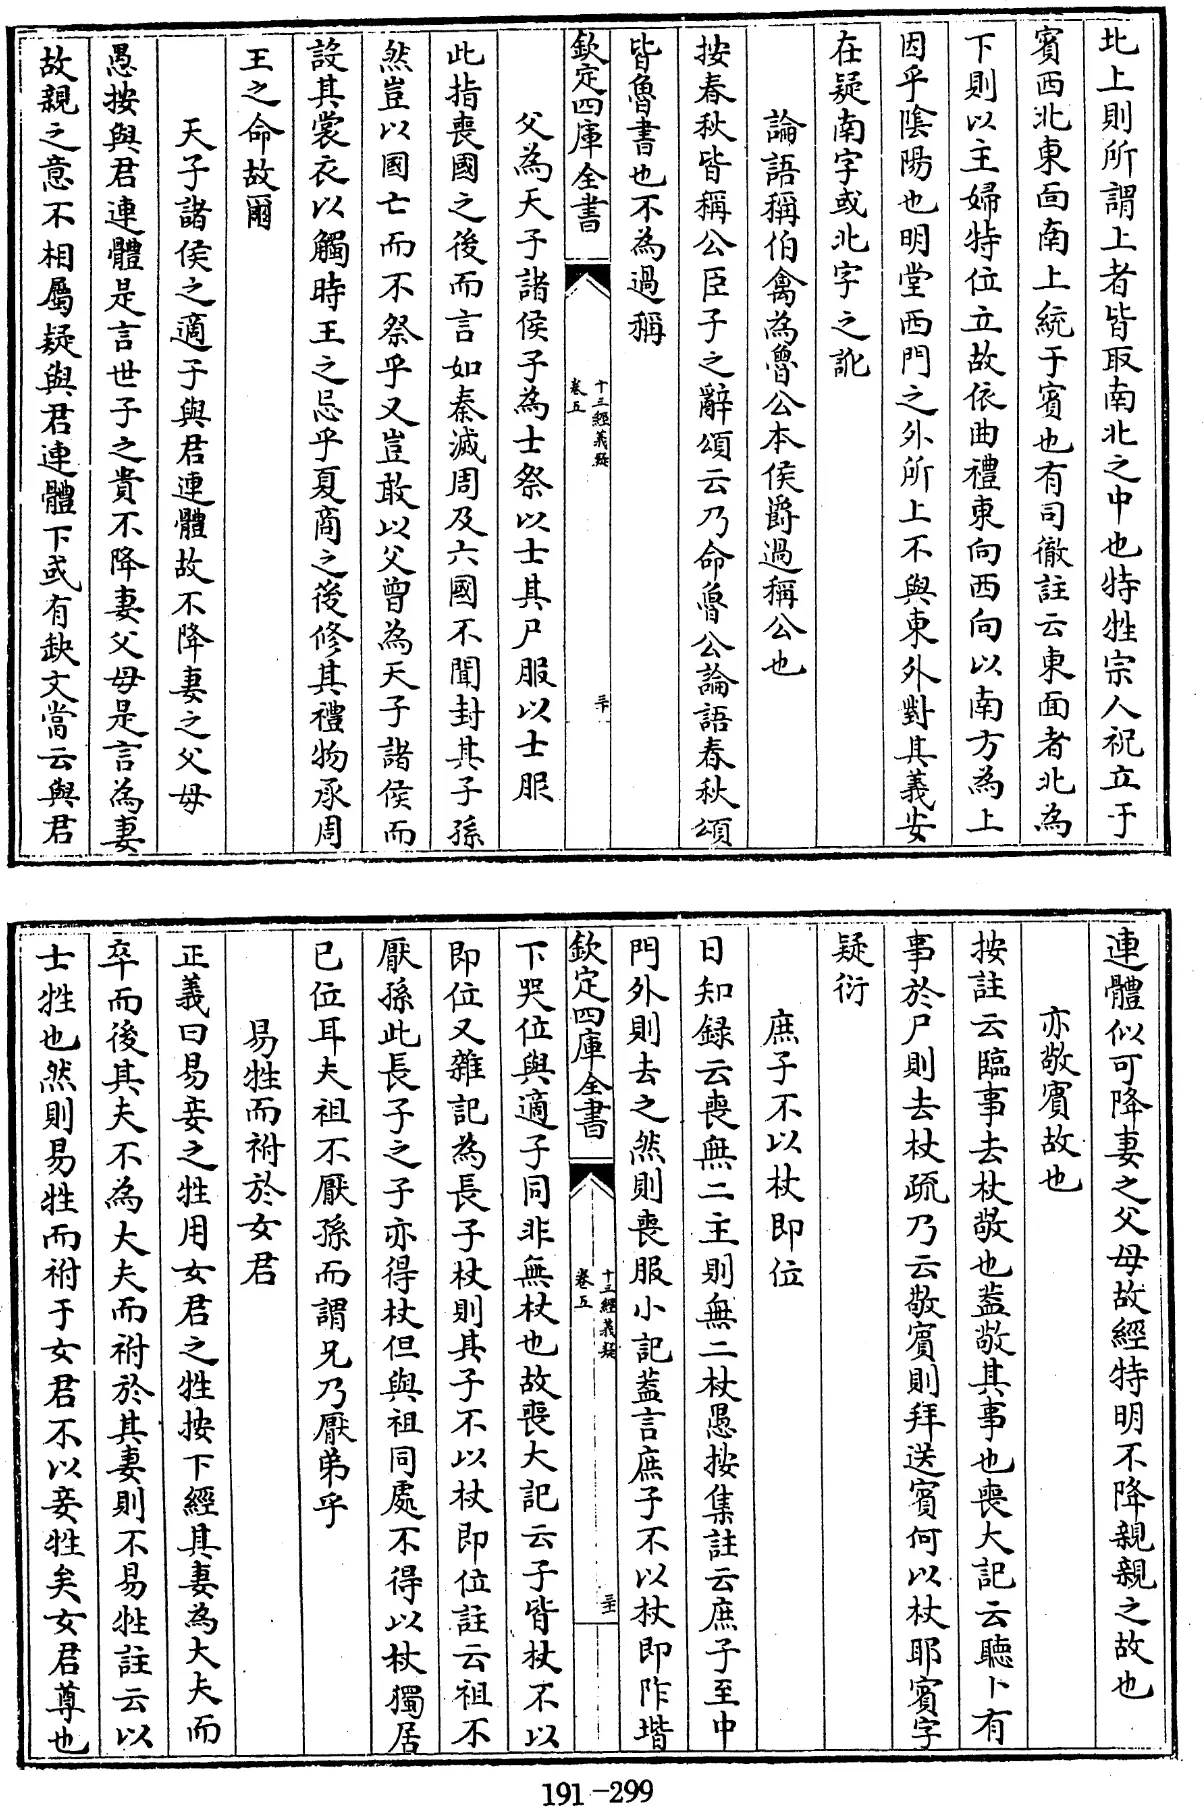 北上則所謂上者皆取南北之中也特牲宗人祝立于
賓西北東面南上統于賓也有司徹註云東面者北為
下則以主婦特位立故依曲禮東向西向以南方為上
因乎陰陽也明堂西門之外所上不與東外對其義安
在疑南字或北字之訛
論語稱伯禽為魯公本侯爵過稱公也
按春秋皆稱公臣子之辭頌云乃命魯公論語春秋頌
皆魯書也不為過稱
欽定四庫全書
十三經義疑
卷五
三十
父為天子諸侯子為士祭以士其尸服以士服
此指喪國之後而言如秦滅周及六國不聞封其子孫
然豈以國亡而不祭乎又豈敢以父曾為天子諸侯而
設其裳衣以觸時王之忌乎夏商之後修其禮物承周
王之命故爾
天子諸侯之適子與君連體故不降妻之父母
愚按與君連體是言世子之貴不降妻父母是言為妻
故親之意不相屬疑與君連體下或有缺文當云與君
連體似可降妻之父母故經特明不降親親之故也
亦敬賓故也
按註云臨事去杖敬也蓋敬其事也喪大記云聽卜有
事於尸則去杖疏乃云敬賓則拜送賓何以杖耶賓字
疑衍
庶子不以杖即位
日知録云喪無二主則無二杖愚按集註云庶子至中
門外則去之然則喪服小記蓋言庶子不以杖即阼堦
欽定四庫全書
十三經義疑
卷五
三十一
下哭位與適子同非無杖也故喪大記云子皆杖不以
即位又雜記為長子杖則其子不以杖即位註云祖不
厭孫此長子之子亦得杖但與祖同處不得以杖獨居
已位耳夫祖不厭孫而謂兄乃厭弟乎
易牲而祔於女君
正義曰易妾之牲用女君之牲按下經其妻為大夫而
卒而後其夫不為大夫而祔於其妻則不易牲註云以
士牲也然則易牲而祔于女君不以妾牲矣女君尊也
191-299